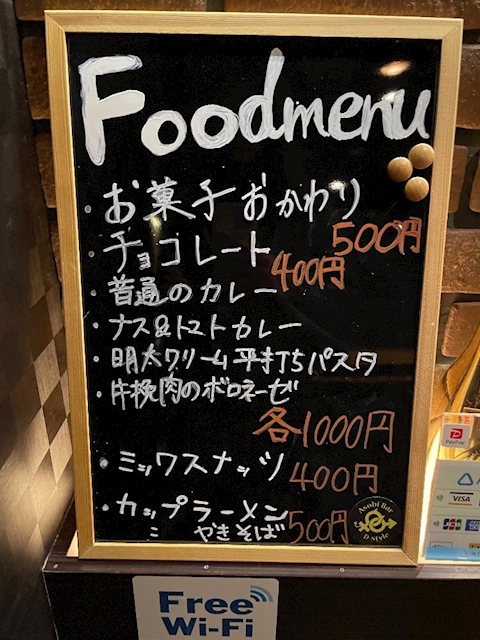 Foodmenu
・お菓子おかわり
500円
・チョコレート 400円
・普通のカレー
・ナス&トマトカレー
・明太クリーム平打ちパスタ
・牛挽肉のボロネーゼ
各1000円
・ミックスナッツ 400円
・カップラーメン
〃 やきそば 500円
Asobi Bar
D-Style
PayPay
VISA
JCB
Free
Wi-Fi